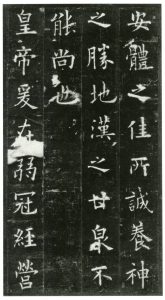 安體之佳所誠養神
之勝地漢之甘泉不
能尚也
皇帝爰在弱冠經營